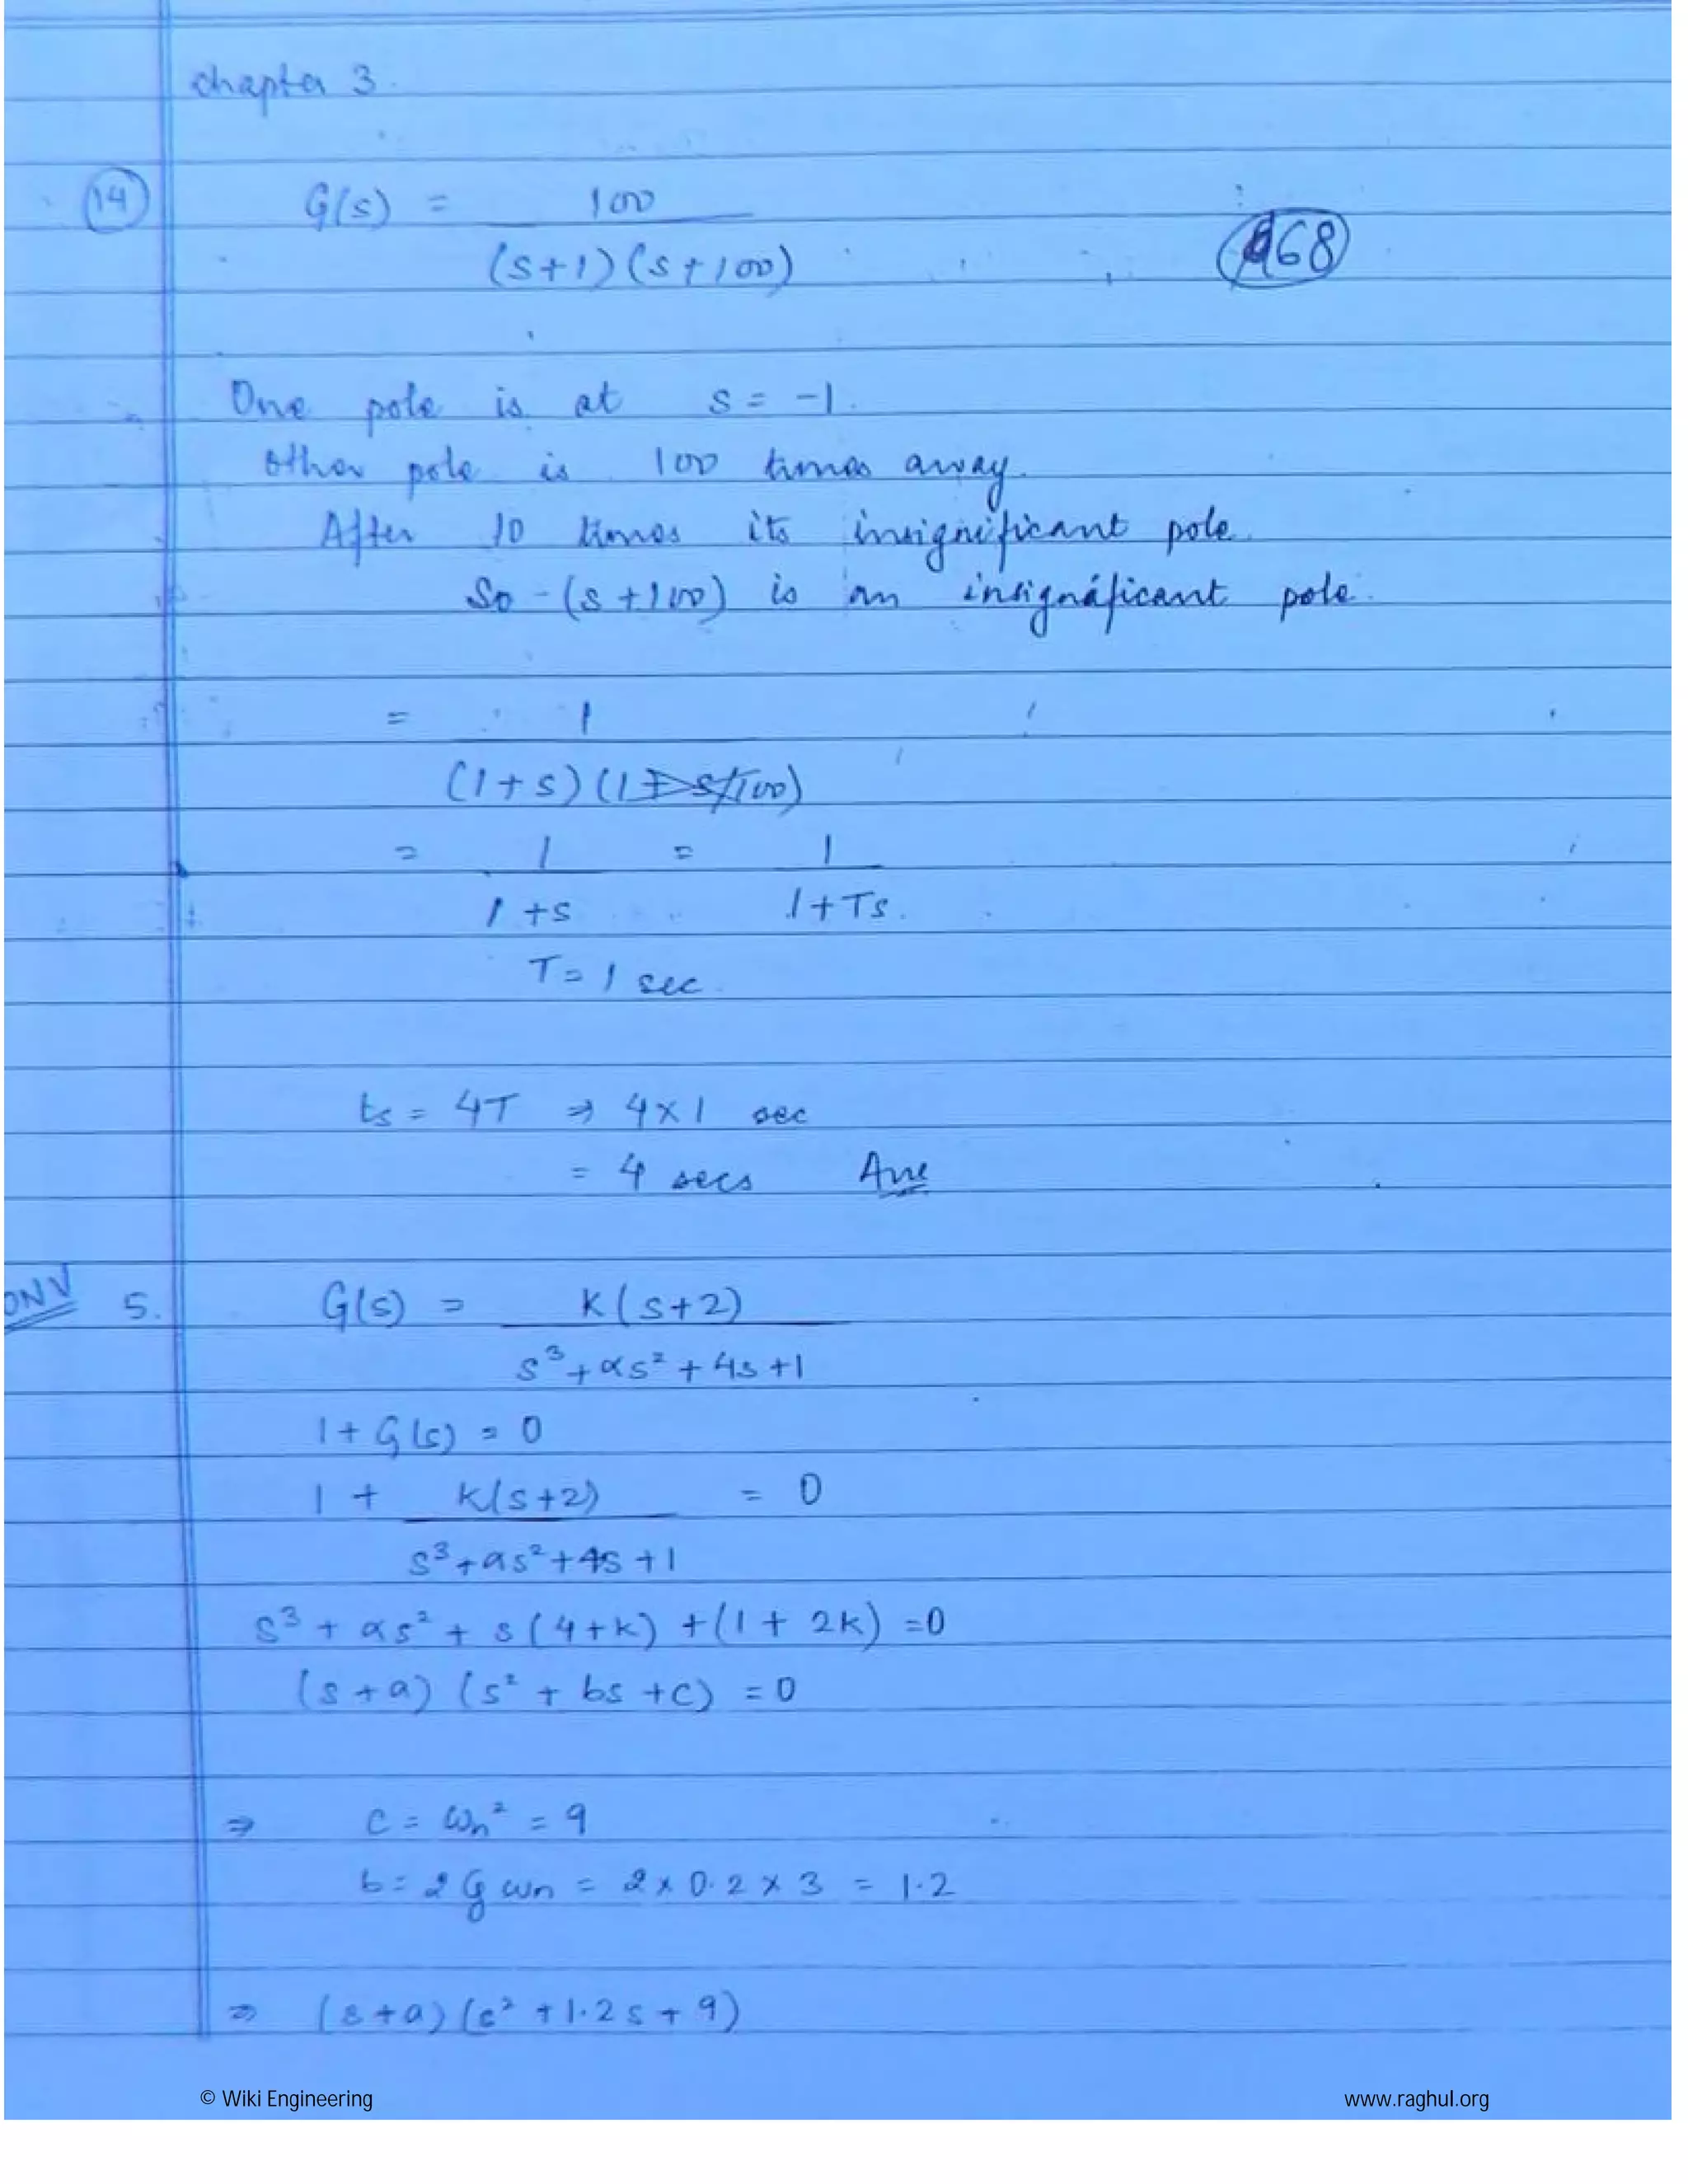 chapter 3.
14 G(s) = 100
(s+1)(s+100)
68
One pole is at s = -1.
Other pole is 100 times away.
After 10 times its insignificant pole.
So (s+100) is an insignificant pole.
= 1
(1+s)(1+s/100)
= 1 = 1
1+s 1+Ts.
T = 1 sec.
ts = 4T ⇒ 4×1 sec
= 4 secs Ans
ONV 5. G(s) = K(s+2)
s³+αs²+4s+1
1+G(s) = 0
1 + K(s+2) = 0
s³+αs²+4s+1
s³ + αs² + s(4+k) + (1+2k) = 0
(s+a)(s² + bs + c) = 0
⇒ c = ωn² = 9
b = 2ξωn = 2×0.2×3 = 1.2
⇒ (s+a)(s²+1.2s+9)
© Wiki Engineering www.raghul.org